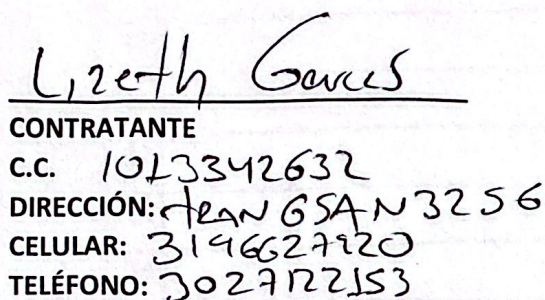 Lizeth Garces
CONTRATANTE
C.C. 1013342632
DIRECCIÓN: 3256
CELULAR: 3196627920
TELÉFONO: